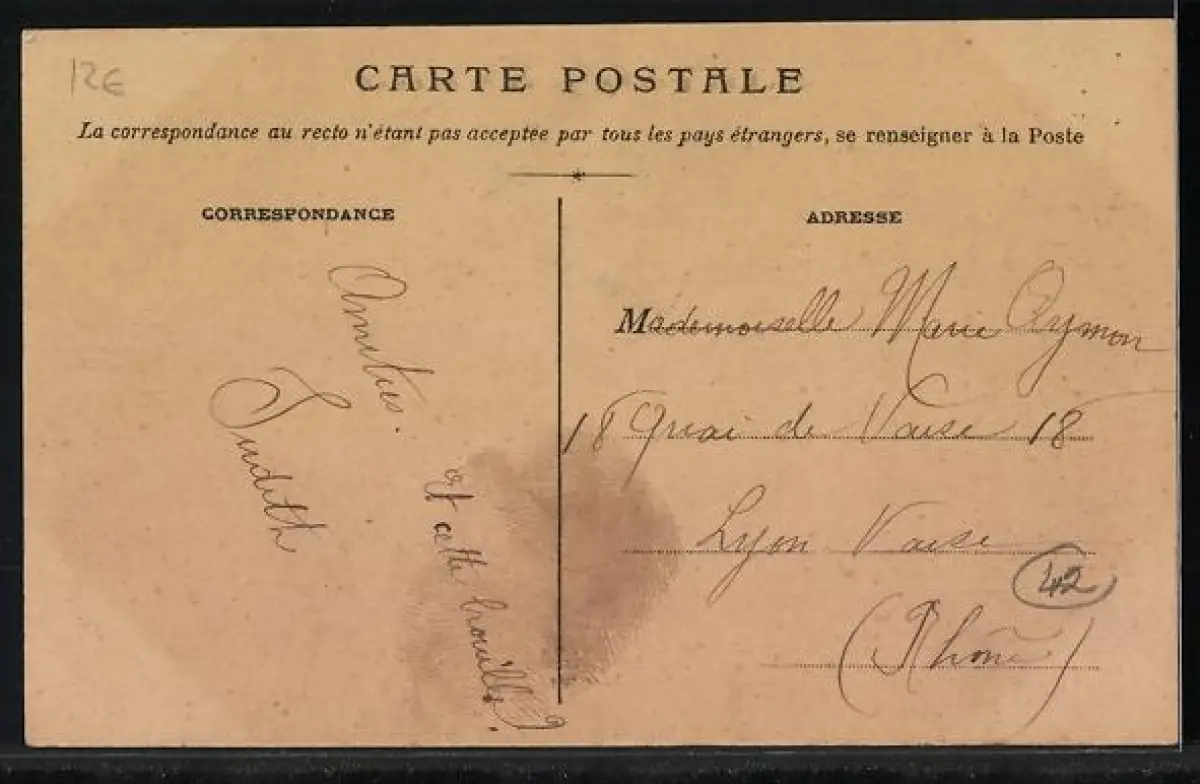 12€
CARTE POSTALE
La correspondance au recto n'étant pas acceptée par tous les pays étrangers, se renseigner à la Poste
CORRESPONDANCE
Amitiés.
Judith
et cette brouille?
ADRESSE
Mademoiselle Marie Aymon
18 Quai de Vaise 18
Lyon Vaise
42
(Rhône)